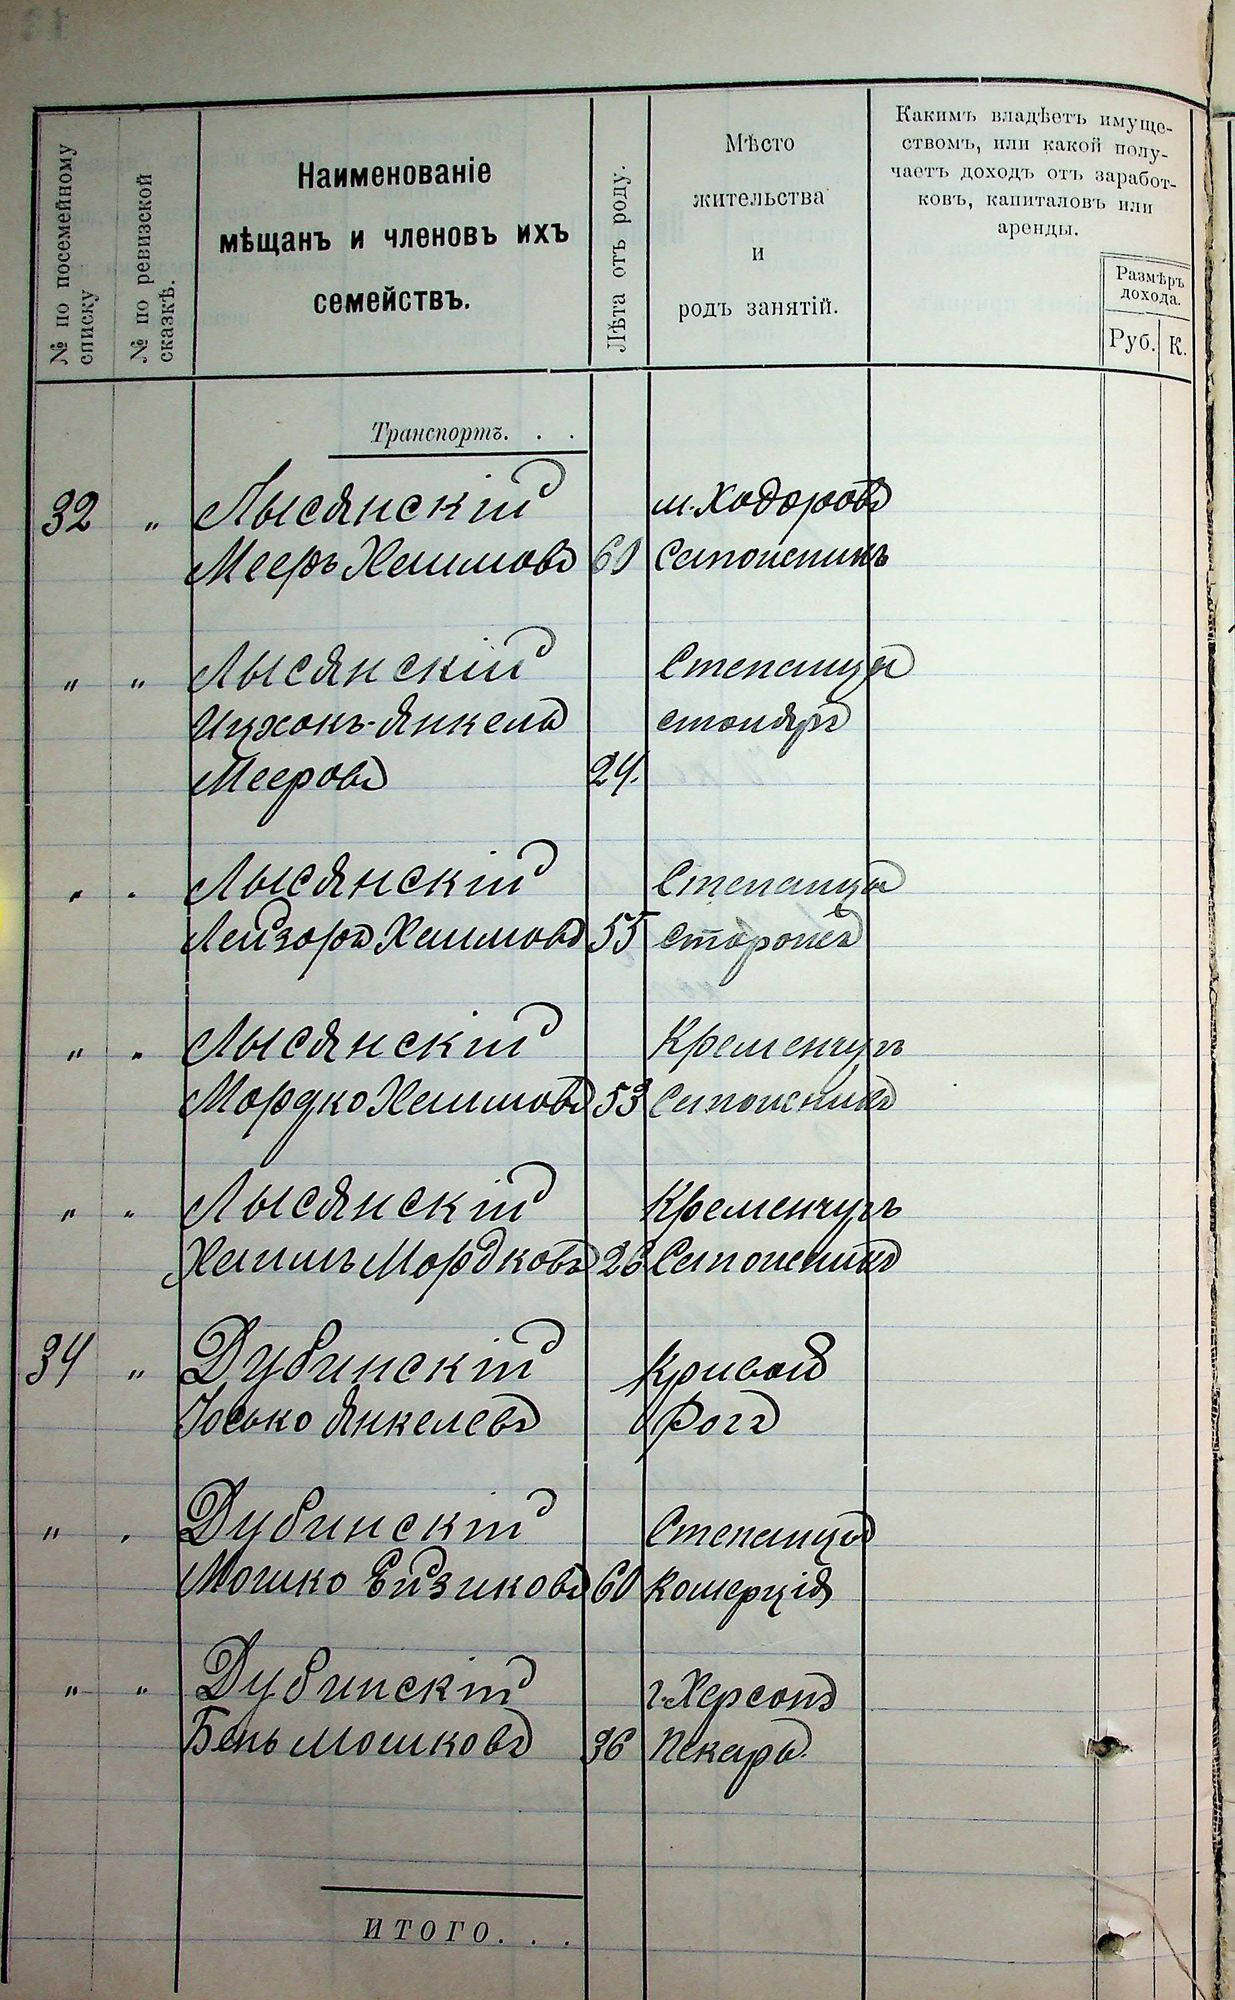 № по посемейному
списку
№ по ревизской
сказкѣ.
Наименованіе
мѣщанъ и членовъ ихъ
семействъ.
Лѣта отъ роду.
Мѣсто
жительства
и
родъ занятій.
Какимъ владѣетъ имуще-
ствомъ, или какой полу-
чаетъ доходъ отъ заработ-
ковъ, капиталовъ или
аренды.
Размѣръ
дохода.
Руб. К.
Транспортъ. . .
32 " Лысянскій м. Ходоровъ
Мееръ Хаимовъ 60 Сапожникъ
" " Лысянскій Степанцы
Ицхокъ-Янкель столяръ
Мееровъ 24.
" " Лысянскій Степанцы
Лейзоръ Хаимовъ 55 Сторожъ
" " Лысянскій Кременчугъ
Мордко Хаимовъ 53 Сапожникъ
" " Лысянскій Кременчугъ
Хаимъ Мордковъ 26 Сапожникъ
34 " Дубинскій Кривой
Иосько Янкелевъ Рогъ
" " Дубинскій Степанцы
Мошко Ейзиковъ 60 комерція
" " Дубинскій г. Херсонъ
Бень Мошковъ 36 Пекарь.
ИТОГО. . .